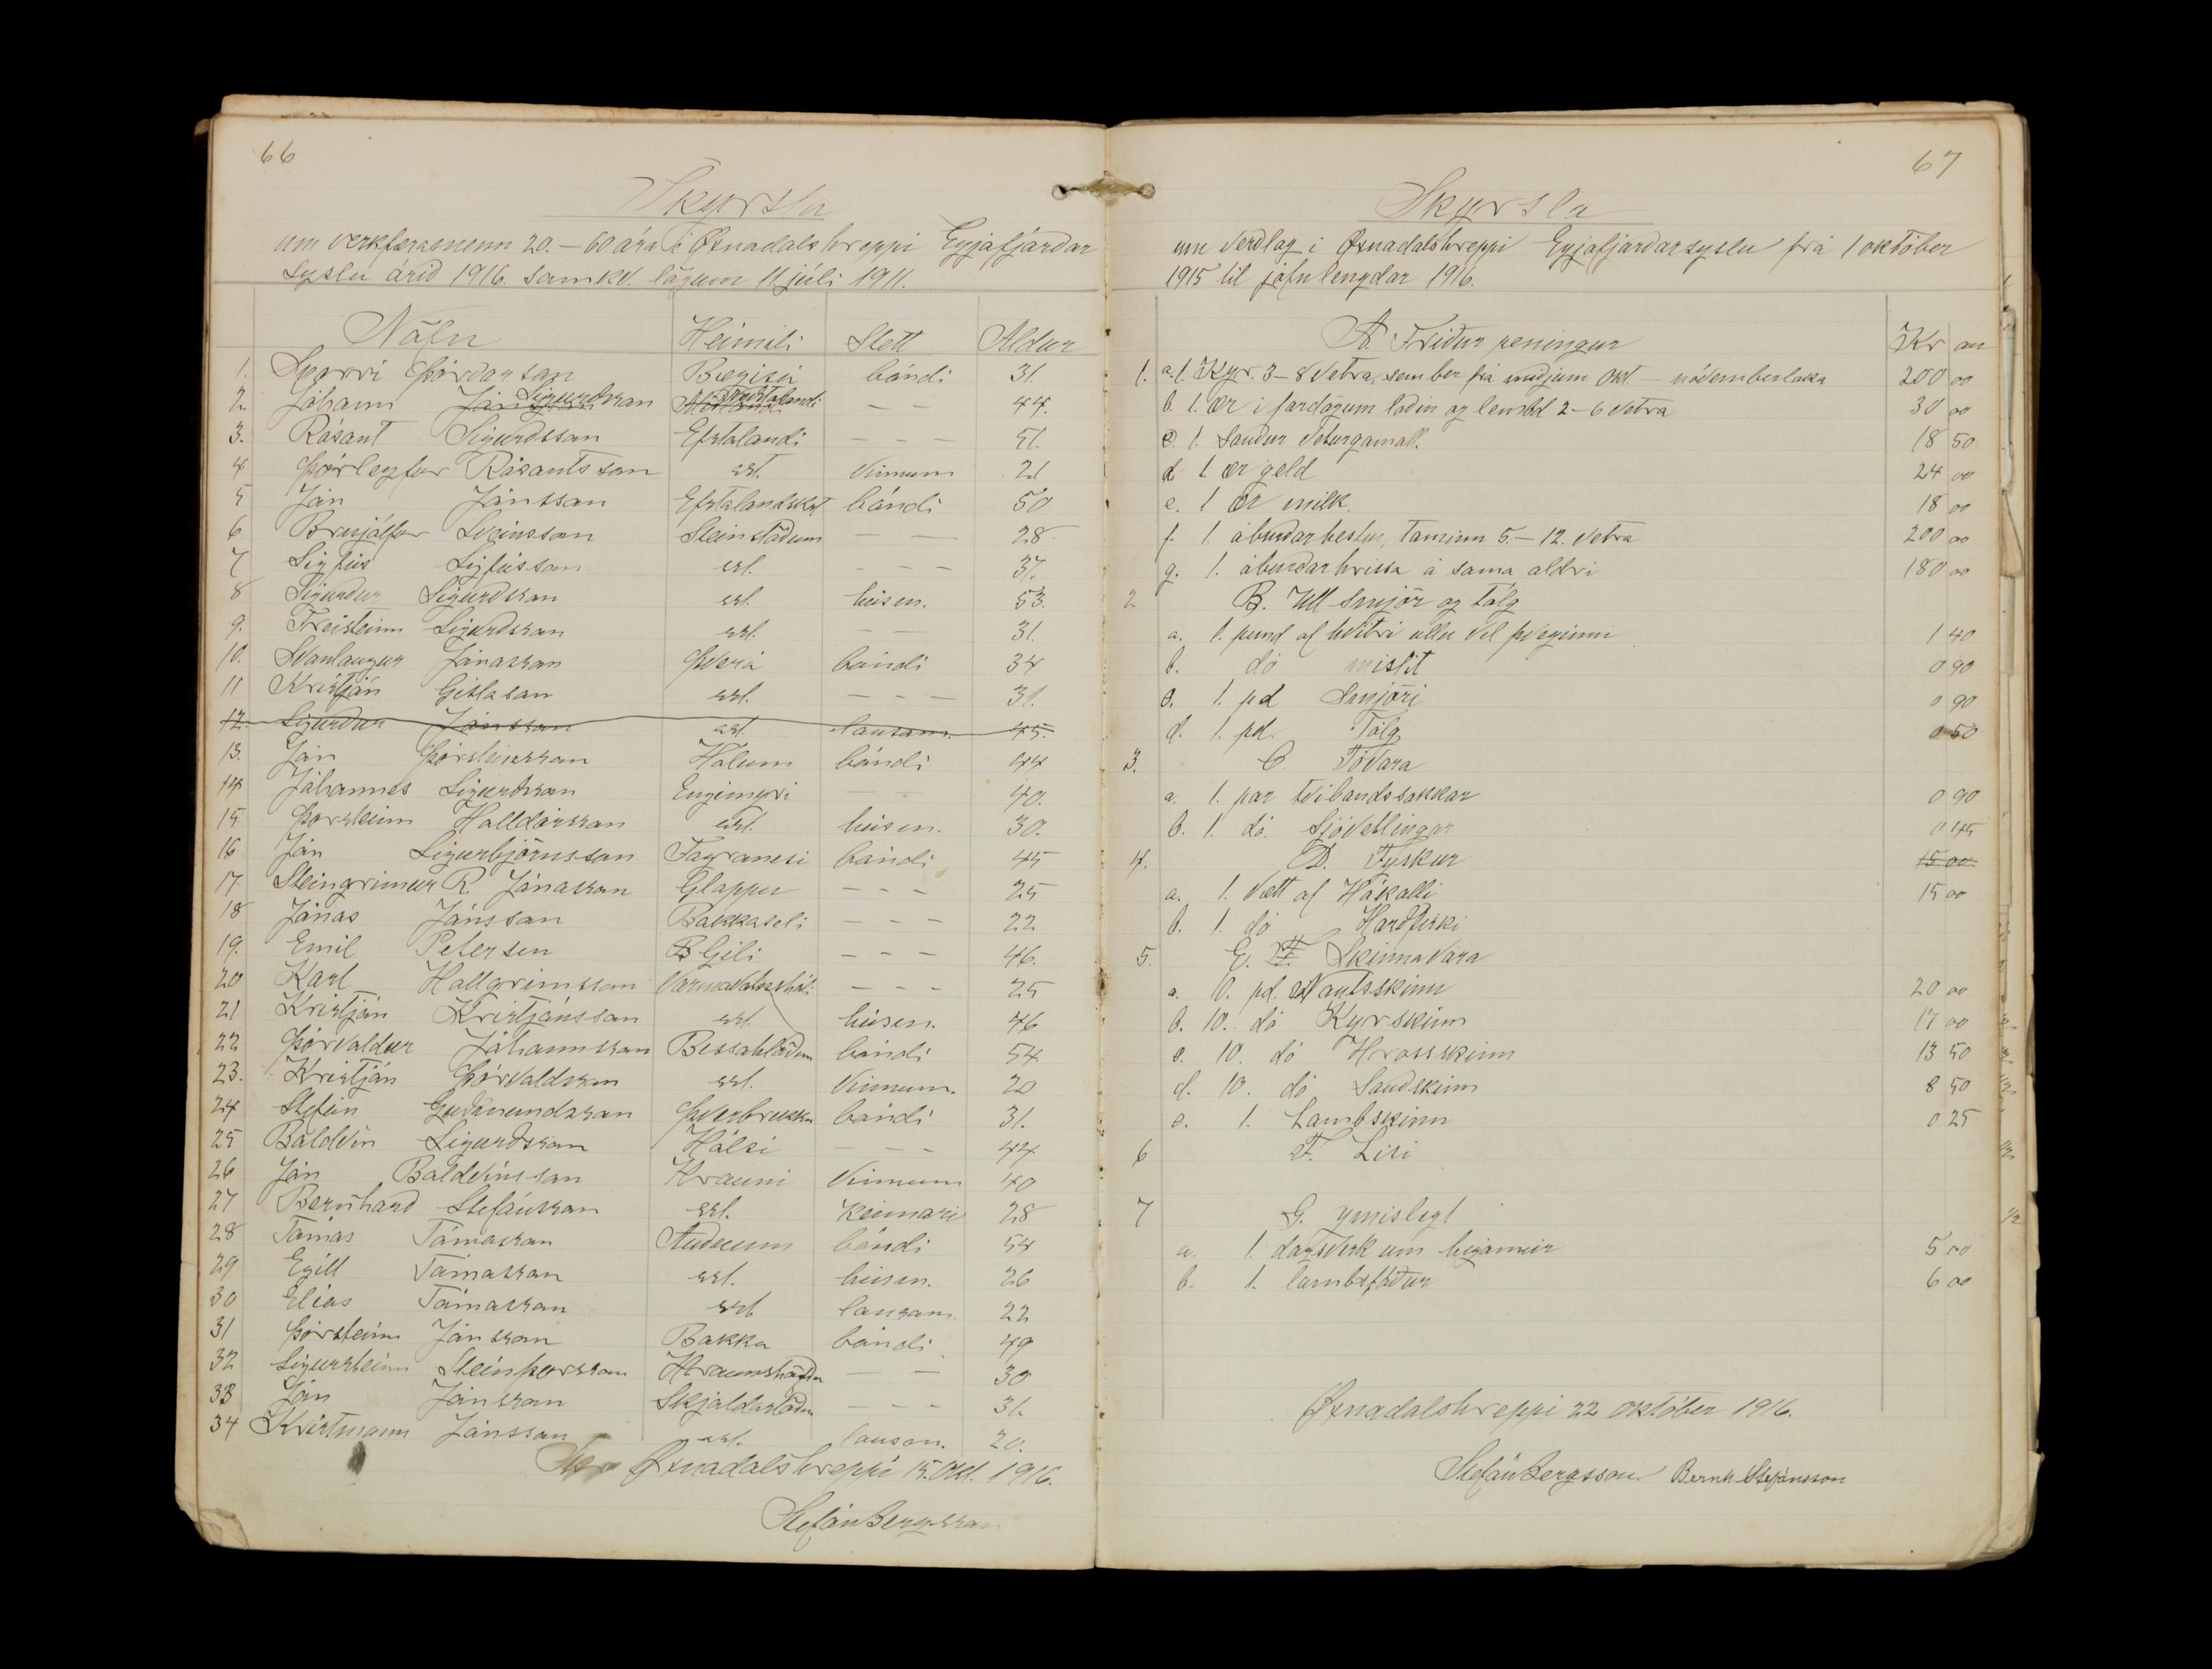 66
Skyrsla
um verkfæramenn 20.–60 ára i Øxnadalshreppi Eyjafjardar
syslu árid 1916. samkv. lögum 11 júli 1911.
Nöfn Heimili Stett Aldur
1. Snorri Þórdarson Bægisá bándi 31.
2. Jóhann Jónsson Sigurdsson Midlandi Neistalandi – – 44.
3. Rósant Sigurdsson Efstalandi – – – 51.
4 Þórleyfur Rósantsson sst. Vinnum 21
5 Jón Jónsson Efstalandskot bóndi 50
6 Brynjólfur Sveinsson Steinstödum – – 28
7 Sigfús Sigfússon sst. – – – 37.
8 Sigurdur Sigurdsson sst. húsm. 53.
9. Freisteinn Sigurdsson sst. – – 31.
10. Svanlaugur Jónasson Þverá bóndi 34
11 Kristján Gislason sst. – – – 31.
12. Sigurdur Jónsson sst. lausam. 45.
13. Jón Þórsteinsson Hólum bóndi 44
14 Jóhannes Sigurdsson Engimyri – – 40.
15 Þorsteinn Halldórsson sst. húsm. 30.
16 Jón Sigurbjörnsson Fagranesi bóndi 45
17 Steingrimur R. Jónasson Gloppu – – – 25
18 Jónas Jónsson Bakkaseli – – – 22
19. Emil Petersen Gili – – – 46.
20 Karl Hallgrimsson Varmavatnshóli – – – 25
21 Kristján Kristjánsson sst. húsm. 46
22 Þórvaldur Jóhannsson Bessahlödum bóndi 54
23. Kristján Þórvaldsson sst. Vinnum. 20
24 Stefán Gudmundsson Þverbrekku bóndi 31.
25 Baldvin Sigurdsson Hálsi – – – 44
26 Jón Baldvinsson Hrauni Vinnum 40
27 Bernhard Stefánsson sst. Kennari 28
28 Tómas Tómasson Audnum bóndi 54
29 Egill Tómasson sst. húsm. 26
30 Elías Tómasson sst lausam. 22
31 Þórsteinn Jónsson Bakka bóndi 49
32 Sigursteinn Steinþorsson Hraunshöfda – – 30
33 Jón Jónsson Skjaldarstödum – – – 31.
34 Kristmann Jónsson sst. lausam. 20.
Øxnadalshreppi 15. Okt. 1916.
Stefán Bergsson
67
Skyrsla
um Verdlag i Øxnadalshreppi Eyjafjardarsyslu frá 1 október
1915 til jafnlengdar 1916.
A Fridur peningur Kr au
1. a. 1. Kyr. 3–8 Vetra, sem ber frá midjum Okt. – nóvemberloka 200 00
b. 1. Ær i fardögum lodin og lembd 2–6 vetra 30 00
c. 1. Saudur Veturgamall. 18 50
d 1. ær geld 24 00
e. 1 ær milk. 18 00
f. 1. áburdarhestur, taminn 5.–12. Vetra 200 00
g. 1. áburdarhrissa á sama aldri 180 00
2 B. Ull Smjör og tólg
a. 1. pund af hvitri ullu vel þveginni 1 40
b. do mislit 0 90
c. 1. pd Smjöri 0 90
d. 1. pd. Tólg 0 50
3. C Tóvara
a. 1. par tvibandssokkar 0 90
b. 1. do. Sjóvetlingar 0 45
4. D. Fyskur 15 00
a. 1. Vætt af Hákalli 15 00
b. 1. do Hardfiski
5. E. Skinnavara
a. 10. pd. Nautsskinn 20 00
b. 10. do Kyrskinn 17 00
c. 10. do Hrossskinn 13 50
d. 10. do Saudskinn 8 50
e. 1. Lambskinn 0 25
6 F. Lisi
7 G. ymislegt
a. 1. dagsverk um heyannir 5 00
b. 1. lambsfódur 6 00
Øxnadalshreppi 22 október 1916.
Stefán Bergsson. Bernh. Stefánsson